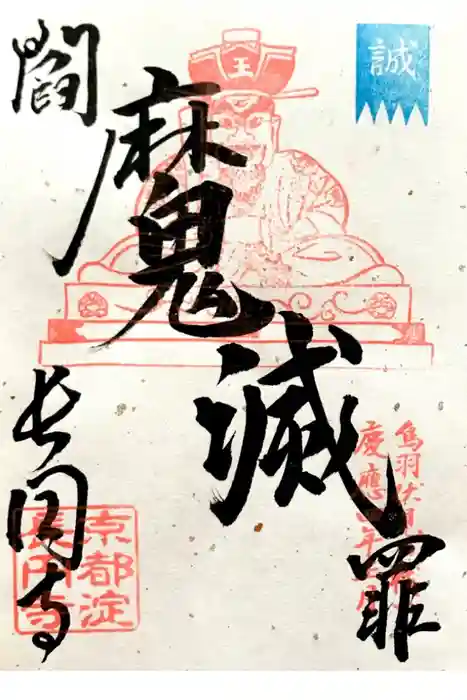 誠
王
閻魔滅罪
鳥羽伏見
慶應四年
長円寺
京都淀
長円寺